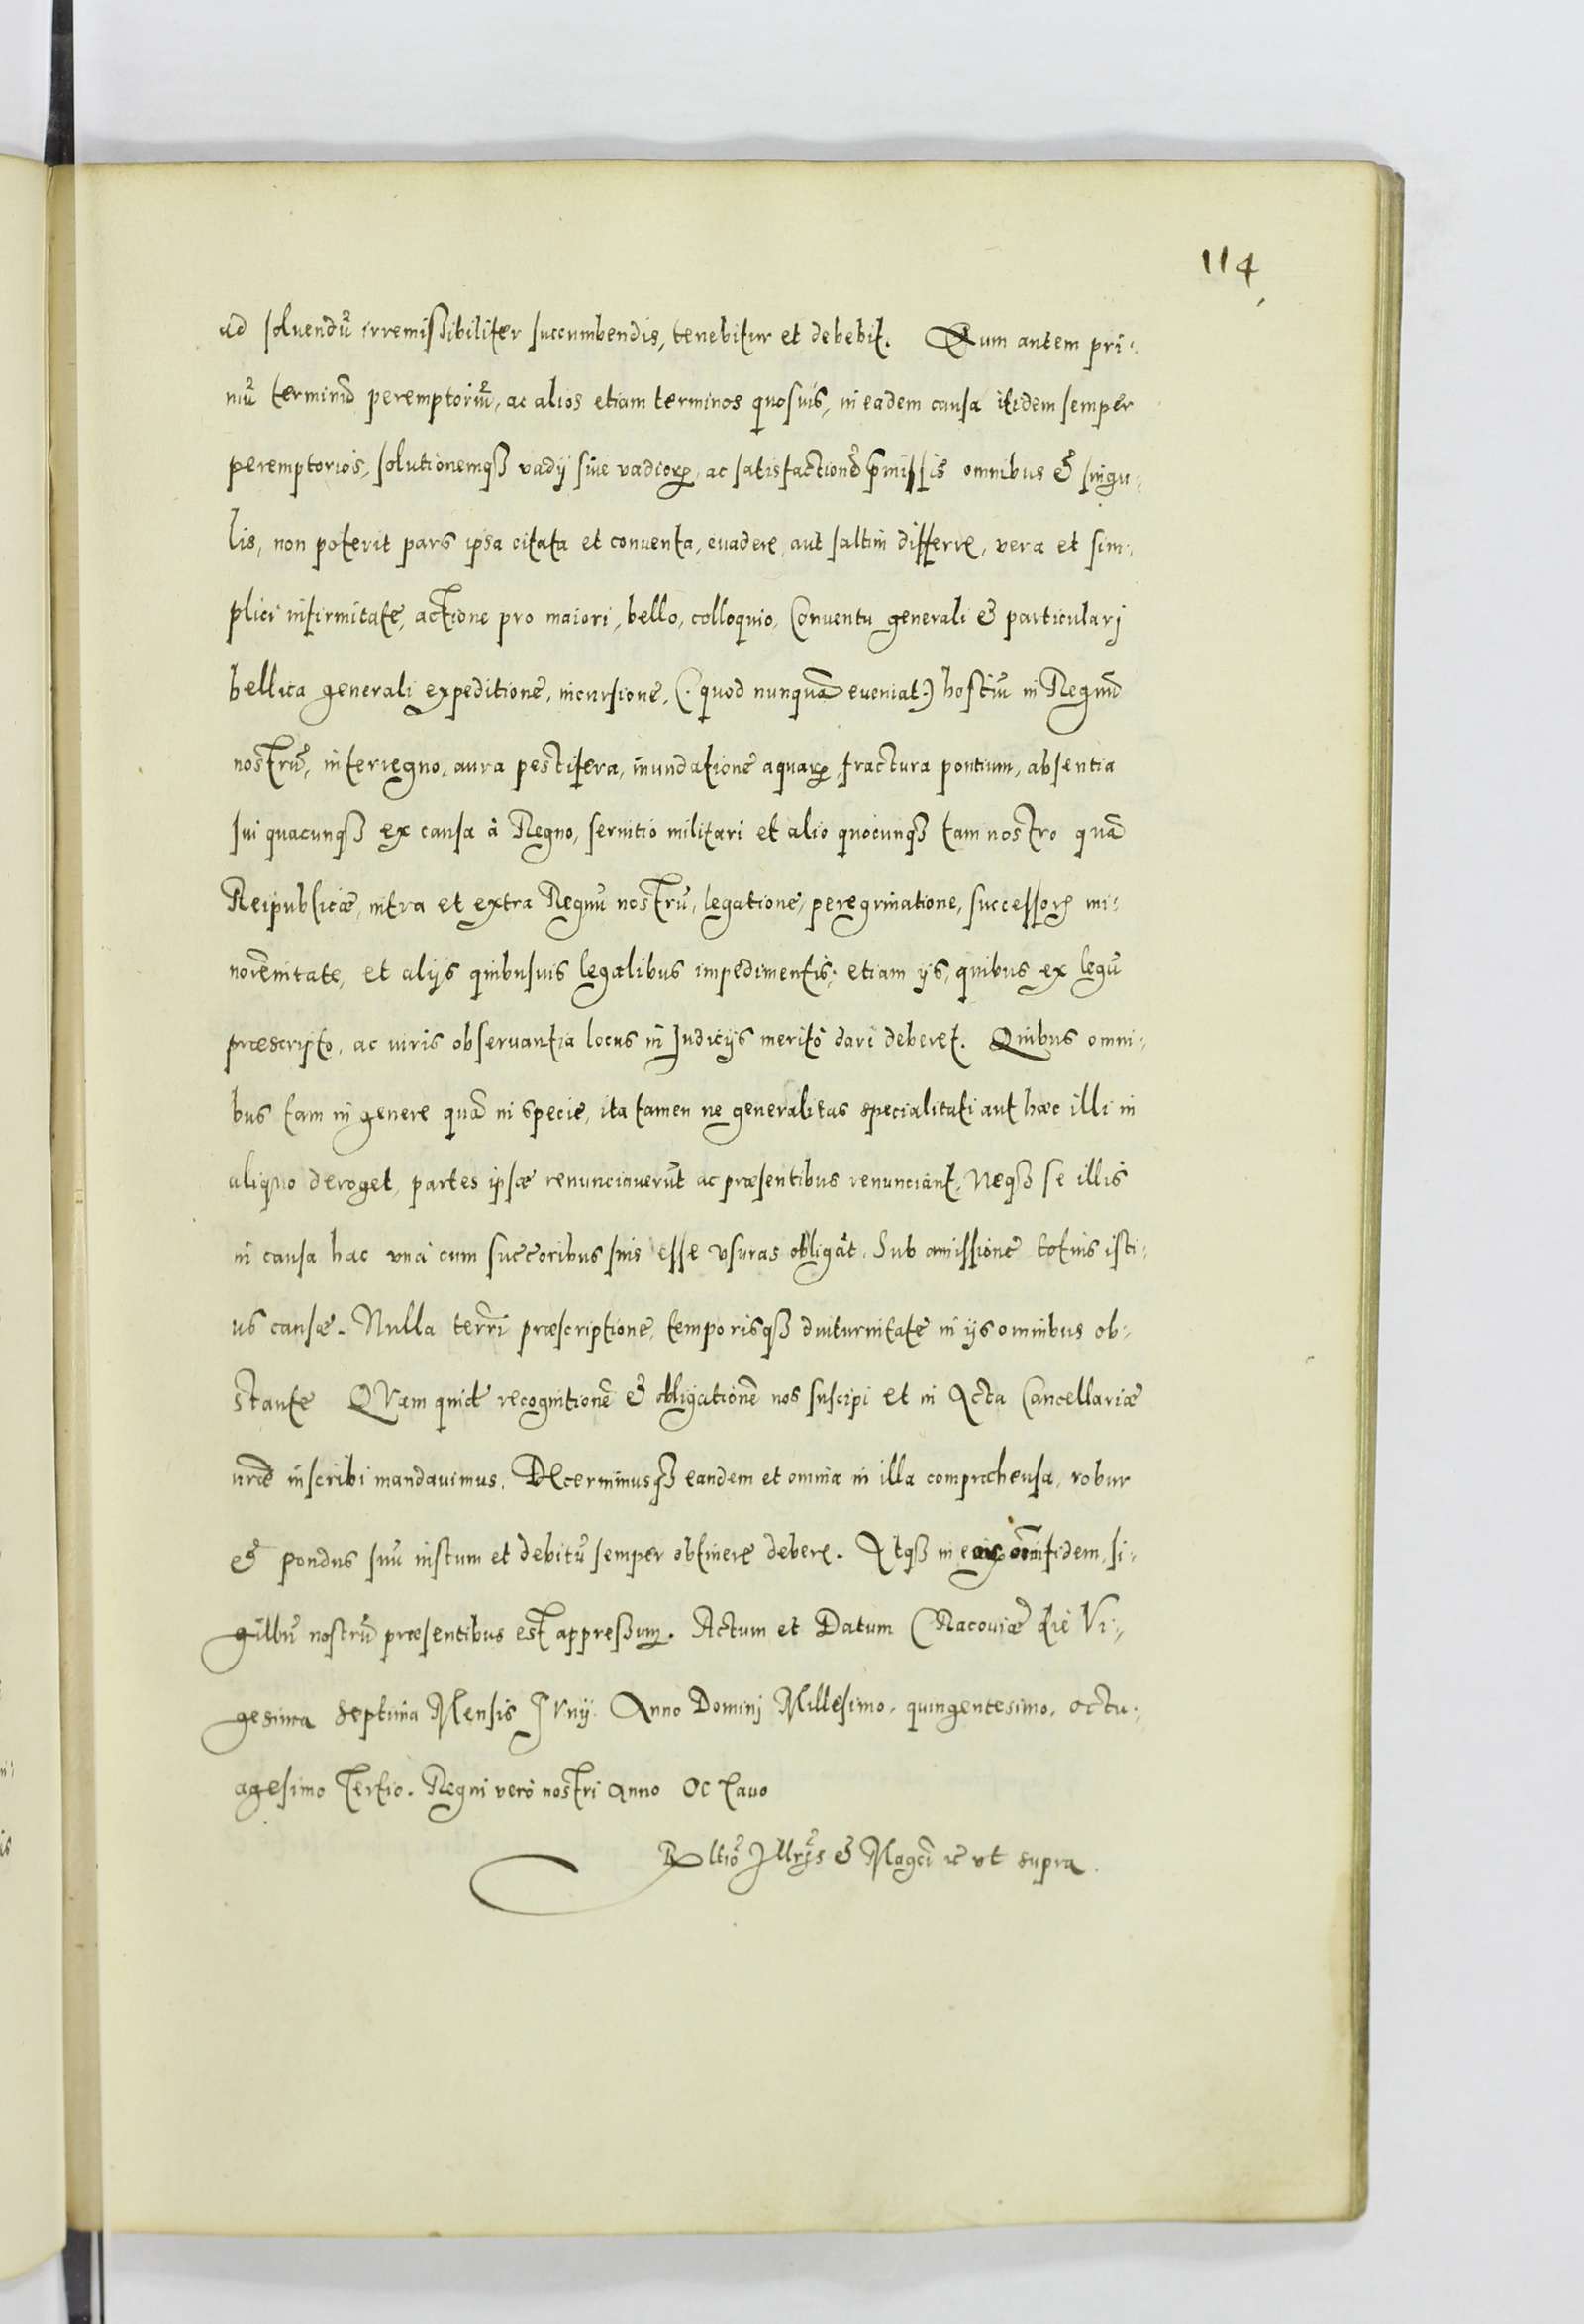 114
ad soluendū irremissibiliter succumbendis, tenebitur et debebit. Quum autem pri-
mū terminū peremptoriū, ac alios etiam terminos quosuis, in eadem causa itidem semper
peremptorios, solutionemqꝫ vadij siue vadioꝝ, ac satisfactionē p̄missis omnibus & singu-
lis, non poterit pars ipsa citata et conuenta, euadere, aut saltim differre, vera et sim-
plici infirmitate, actione pro maiori, bello, colloquio, Conuentu generali & particularj
bellica generali expeditione, incursione, (quod nunquā eueniat) hostiū in Regnū
nostrū, interregno, aura pestifera, inundatione aquaꝝ, fractura pontium, absentia
sui quacunqꝫ ex causa à Regno, seruitio militari et alio quocunqꝫ tam nostro quā
Reipublicæ, intra et extra Regnū nostrū, legatione, peregrinatione, successoꝝ mi-
norennitate, et alijs quibusuis legalibus impedimentis, etiam ijs, quibus ex legū
præscripto, ac iuris obseruantia locus in Judicijs meritò dari deberet. Quibus omni-
bus tam in genere quā in specie, ita tamen ne generalitas specialitati aut hæc illi in
aliquo deroget, partes ipsæ renunciauerūt ac præsentibus renunciant, Neqꝫ se illis
in causa hac vnà cum succoribus suis esse vsuras obligāt. Sub amissione totius isti-
us causæ. Nulla terrī præscriptione, temporisqꝫ diuturnitate in ijs omnibus ob-
stante QVam quidē recognitionē & obligationē nos suscipi et in Acta Cancellariæ
nræ inscribi mandauimus. DEcernimusqꝫ eandem et omnia in illa compræhensa, robur
& pondus suū iustum et debitū semper obtinere debere. Atqꝫ in eoꝝ om̄ fidem, si-
gillū nostrū præsentibus est appressum. Actum et Datum CRacouiæ die Vi-
gesima septima Mensis IVnij. Anno Dominj Millesimo, quingentesimo, octu-
agesimo Tertio. Regni verò nostri Anno OcTauo
Rltiō Illrīs & Magcī ꝛc vt supra.